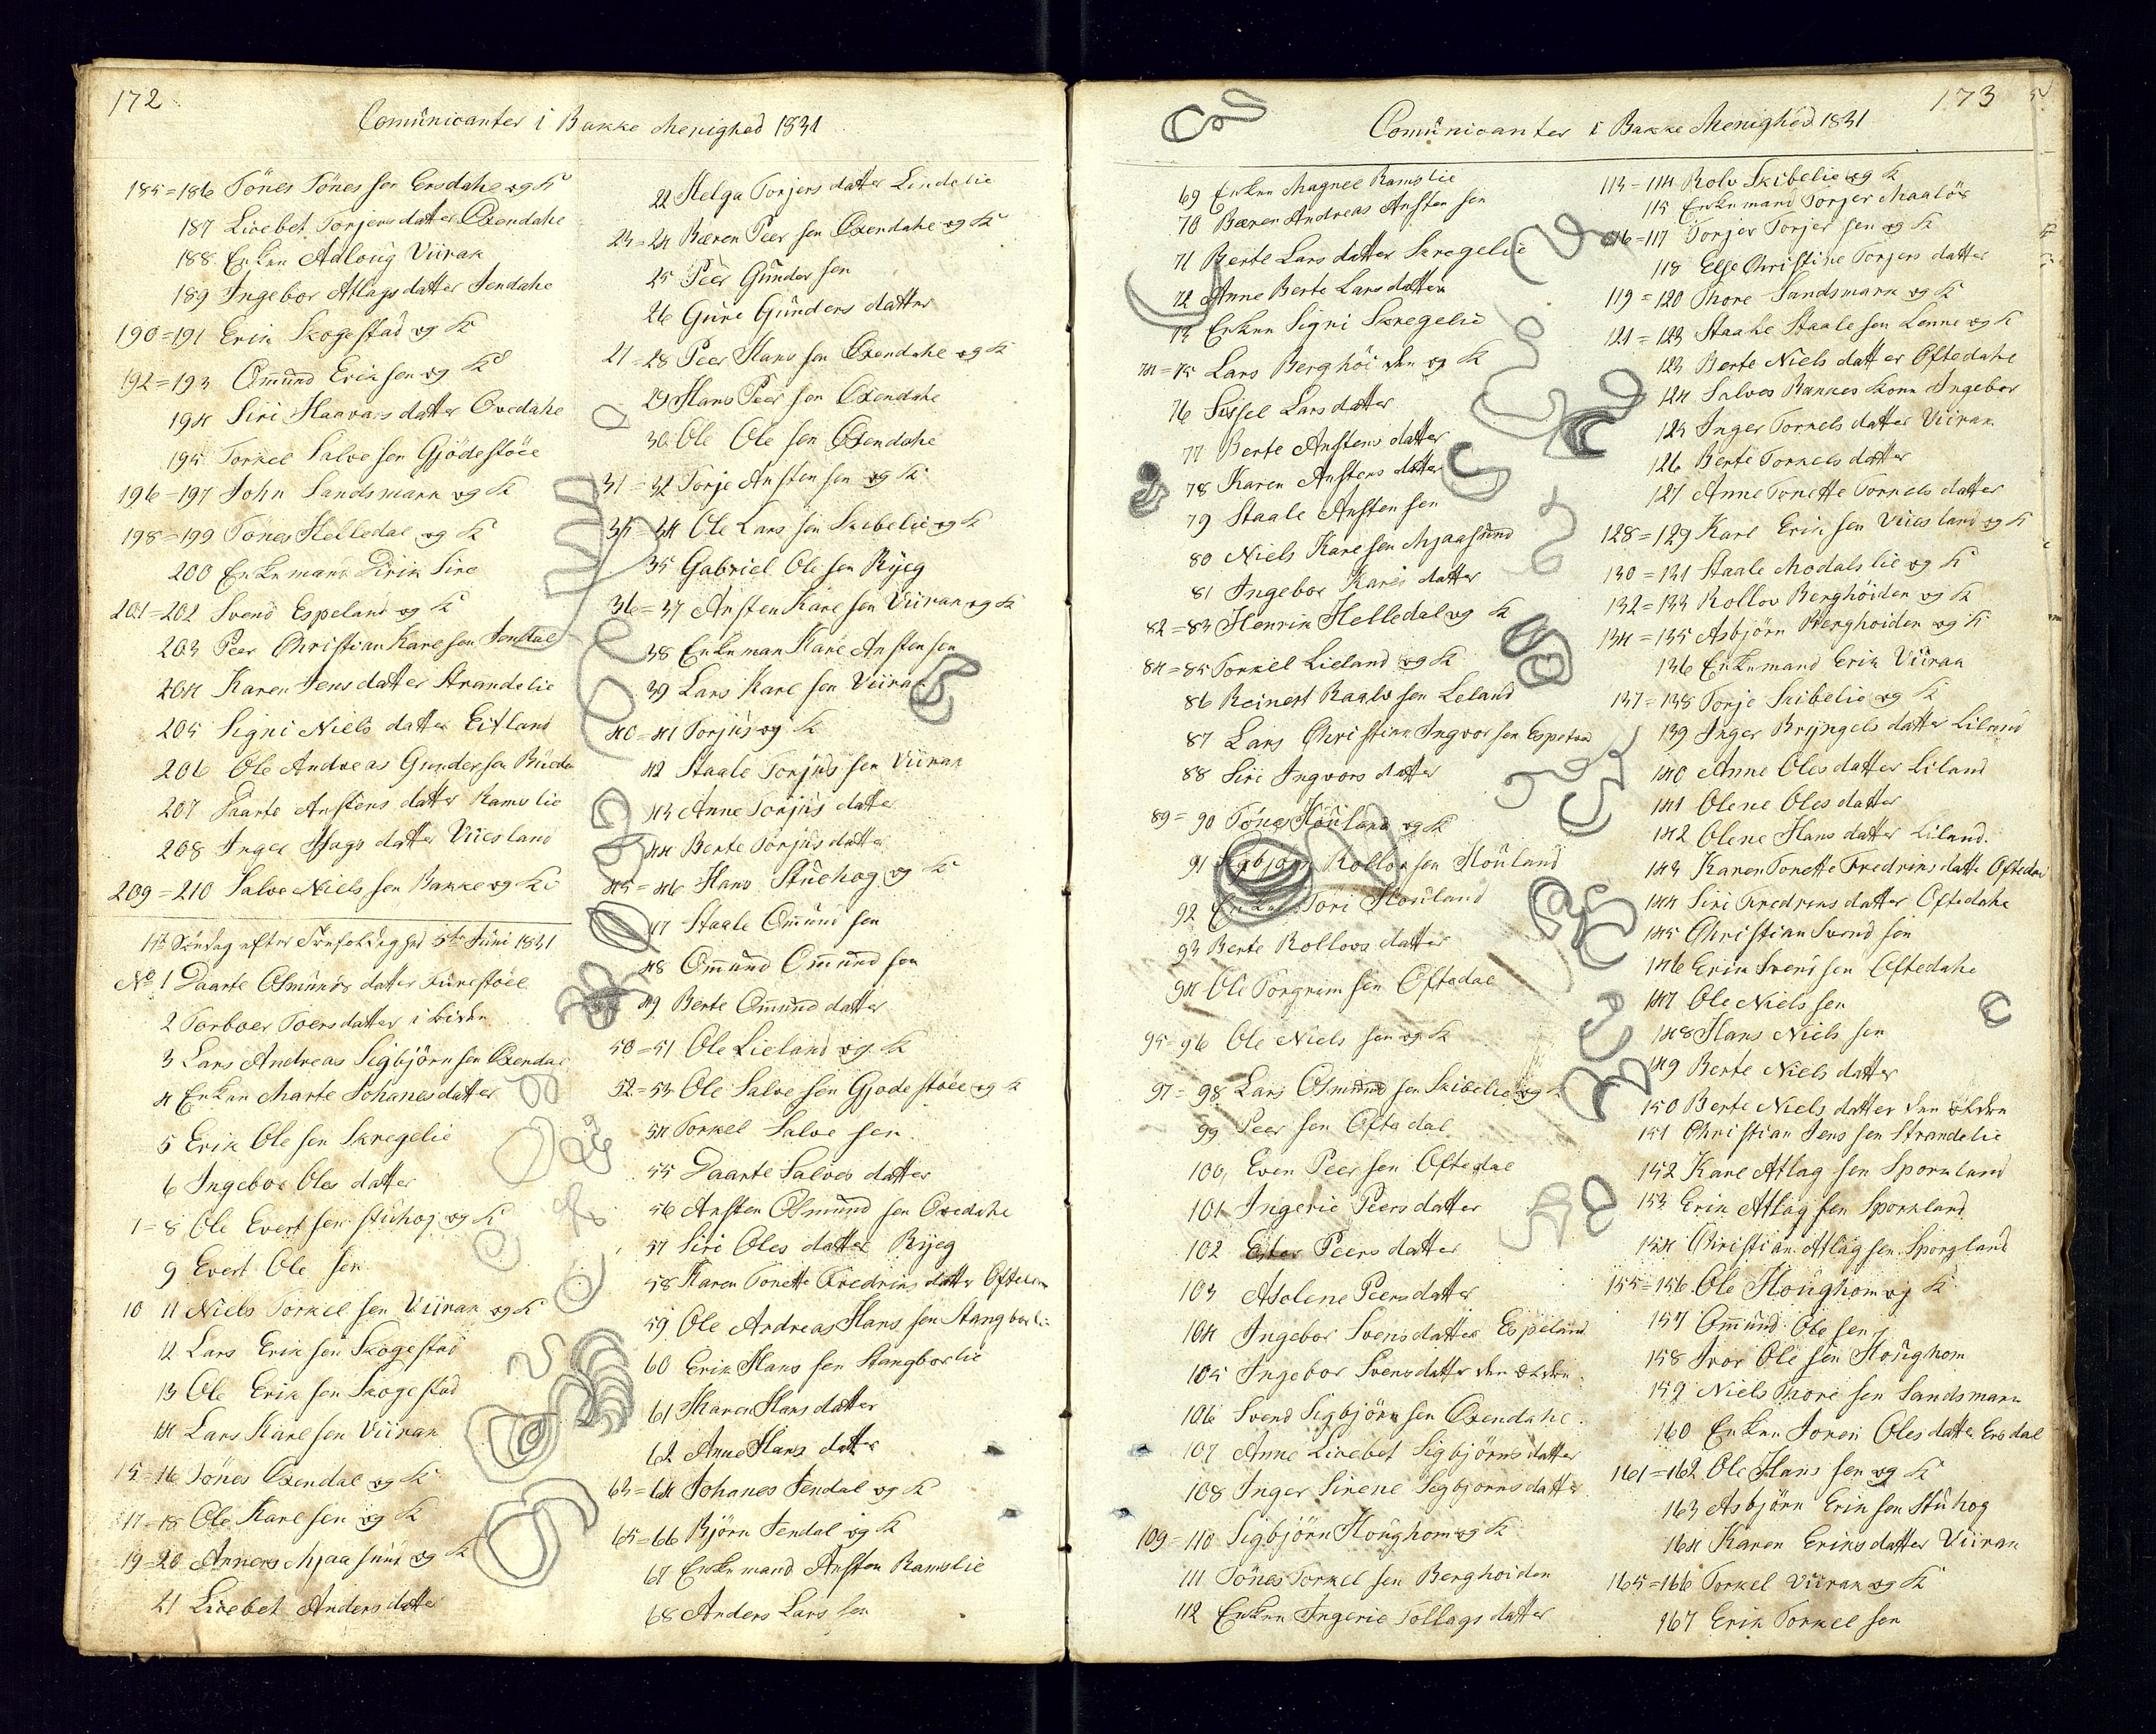 172
Comunicanter i Bakke Menighed 1831
185=186 Tönes Tönes sen Ersdahl og K
187 Livebet Torjers datter Oxendahl
188 Enken Adloug Viirak
189 Ingebor Atlags datter Jendahl
190=191 Erik Skogestad og K
192=193 Omund Erik sen og K
194 Siri Haavars datter Ovedahl
195 Torkel Salve sen Gjödestöll
196=197 John Sandsmark og K
198=199 Tönes Helledal og K
200 Enkemand Dirik Sire
201=202 Svend Espeland og K
203 Peer Christian Karl sen Jendal
204 Karen Jens datter Strandelie
205 Signi Niels datter Eitland
206 Ole Andreas Gunder sen
207 Daarte Anstens datter Ramslie
208 Inger datter Viiesland
209=210 Salve Niels sen Bakke og K
1te Söndag efter Trefoldighed 5te Juni 1831
No 1 Daarte Osmunds datter
2 Torboer Toers datter i
3 Lars Andreas Sigbjörn sen Oxendal
4 Enken Marte Johanes datter
5 Erik Ole sen Skregelie
6 Ingebor Oles datter
7=8 Ole Evert sen Stuhog og K
9 Evert Ole sen
10 11 Niels Torkel sen Viirak og K
12 Lars Erik sen Skogestad
13 Ole Erik sen Skogestad
14 Lars Karl sen Viirak
15=16 Tönes Oxendal og K
17=18 Ole Karl sen og K
19=20 Anners Mjaasund og K
21 Livebet Anders datter
22 Helga Torjers datter Lindelie
23=24 Bæren Peer sen Oxendahl og K
25 Peer Gunder sen
26 Guri Gunders datter
27=28 Peer Hans sen Oxendahl og K
29 Hans Peer sen Oxendahl
30 Ole Ole sen Oxendahl
31=32 Torje Ansten sen og K
33=34 Ole Lars sen Skibelie og K
35 Gabriel Ole sen Ryeg
36=37 Ansten Karl sen Viirak og K
38 Enkeman Karl Ansten sen
39 Lars Karl sen Viirak
40=41 Torjus og K
42 Staale Torjus sen Viirak
43 Anne Torjus datter
44 Berte Torjus datter
45=46 Hans Stuehog og K
47 Staale Omund sen
48 Omund Omund sen
49 Berte Omund datter
50=51 Ole Lieland og K
52=53 Ole Salve sen Gjodestöll og K
54 Torkel Salve sen
55 Daarte Salves datter
56 Ansten Osmund sen Ovedahl
57 Siri Oles datter Ryeg
58 Karen Tonette Fredriks datter
59 Ole Andreas Hans sen Stangborlie
60 Erik Hans sen Stangborlie
61 Karen Hans datter
62 Anne Hans datter
63=64 Johanes Jendal og K
65=66 Björn Jendal og K
67 Enkemand Ansten Ramslie
68 Anders Lars sen
173
Comunicanter i Bakke Menighed 1831
69 Enken Magnel Ramslie
70 Bæren Andreas Ansten sen
71 Berte Lars datter Skregelie
72 Anne Berte Lars datter
73 Enken Signi Skregelie
74=75 Lars Berghöiden og K
76 Sissel Lars datter
77 Berte Anstens datter
78 Karen Anstens datter
79 Staale Ansten sen
80 Niels Karl sen Mjaasund
81 Ingebor Karls datter
82=83 Henrik Helledal og K
84=85 Torkel Lieland og K
86 Reinert Raalv sen Leland
87 Lars Christian Ingvor sen
88 Siri Ingvors datter
89=90 Tönes Houland og K
91 Rollov sen Houland
92 Tori Houland
93 Berte Rollovs datter
94 Ole Torgrim sen Oftedal
95=96 Ole Niels sen og K
97=98 Lars Osmund sen Skibelie og K
99 Peer sen Oftedal
100 Even Peer sen Oftedal
101 Ingerie Peers datter
102 Ester Peers datter
103 Asolene Peers datter
104 Ingebor Svens datter Espeland
105 Ingebor Svens datter den ælden
106 Svend Sigbjörn sen Oxendahl
107 Anne Livebet Sigbjörns datter
108 Inger Sirene Sigbjorns datter
109=110 Sigbjörn Houghom og K
111 Tönes Torkel sen Berghoiden
112 Enken Ingerie Tollags datter
113=114 Rolv Skibelie og K
115 Enkemand Torjer Maalös
116=117 Torjer Torjer sen og K
118 Else Christine Torjers datter
119=120 Thore Sandsmark og K
121=122 Staale Staale sen Lonne og K
123 Berte Niels datter Oftedahl
124 Salves Bakkes Kone Ingebor
125 Inger Torkels datter Viirak
126 Berte Torkels datter
127 Anne Tonette Torkels datter
128=129 Karl Erik sen Viiesland og K
130=131 Staale Modalslie og K
132=133 Rollov Berghöiden og K
134=135 Asbjörn Berghoiden og K
136 Enkemand Erik Viirak
137=138 Torje Skibelie og K
139 Inger Bryngels datter Liland
140 Anne Oles datter Liland
141 Olene Oles datter
142 Olene Hans datter Liland
143 Karen Tonette Fredriks datter
144 Siri Fredriks datter Oftedahl
145 Christian Svend sen
146 Erik Svend sen Oftedahl
147 Ole Niels sen
148 Hans Niels sen
149 Berte Niels datter
150 Berte Niels datter den ælden
151 Christian Jens sen Strandelie
152 Karl Atlag sen Sporkland
153 Erik Atlag sen Sporkland
154 Christian Atlag sen Sporgland
155=156 Ole Houghom og K
157 Omund Ole sen
158 Ivor Ole sen Houghom
159 Niels Thore sen Sandsmark
160 Enken Joren Oles datter Ersdal
161=162 Ole Hans sen og K
163 Asbjörn Erik sen Stuhog
164 Karen Eriks datter Viirak
165=166 Torkel Viirak og K
167 Erik Torkel sen